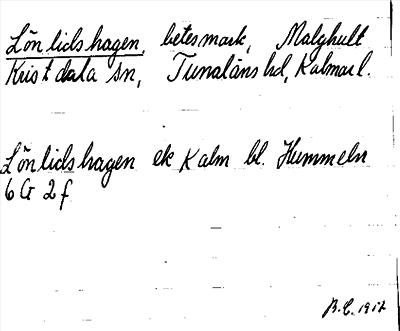 Lönlidshagen, betesmark, Malghult
Kristdala sn, Tunaläns hd, Kalmar l.
Lönlidshagen ek Kalm bl. Hummeln
6 G 2 f
B.E. 1917